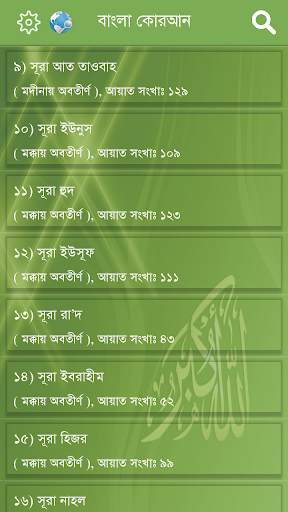 বাংলা কোরআন
৯) সূরা আত তাওবাহ
( মদীনায় অবতীর্ণ ), আয়াত সংখাঃ ১২৯
১০) সূরা ইউনুস
( মক্কায় অবতীর্ণ ), আয়াত সংখাঃ ১০৯
১১) সূরা হুদ
( মক্কায় অবতীর্ণ ), আয়াত সংখাঃ ১২৩
১২) সূরা ইউসূফ
( মক্কায় অবতীর্ণ ), আয়াত সংখাঃ ১১১
১৩) সূরা রা'দ
( মক্কায় অবতীর্ণ ), আয়াত সংখাঃ ৪৩
১৪) সূরা ইবরাহীম
( মক্কায় অবতীর্ণ ), আয়াত সংখাঃ ৫২
১৫) সূরা হিজর
( মক্কায় অবতীর্ণ ), আয়াত সংখাঃ ৯৯
১৬) সূরা নাহল
الله أكبر